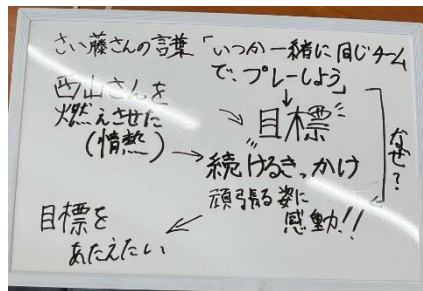 さい藤さんの言葉「いつか一緒に同じチーム
で、プレーしよう」
西山さんを
燃えさせた
(情熱)
目標
続けるきっかけ
頑張る姿に
感動!!
なぜ?
目標を
あたえたい